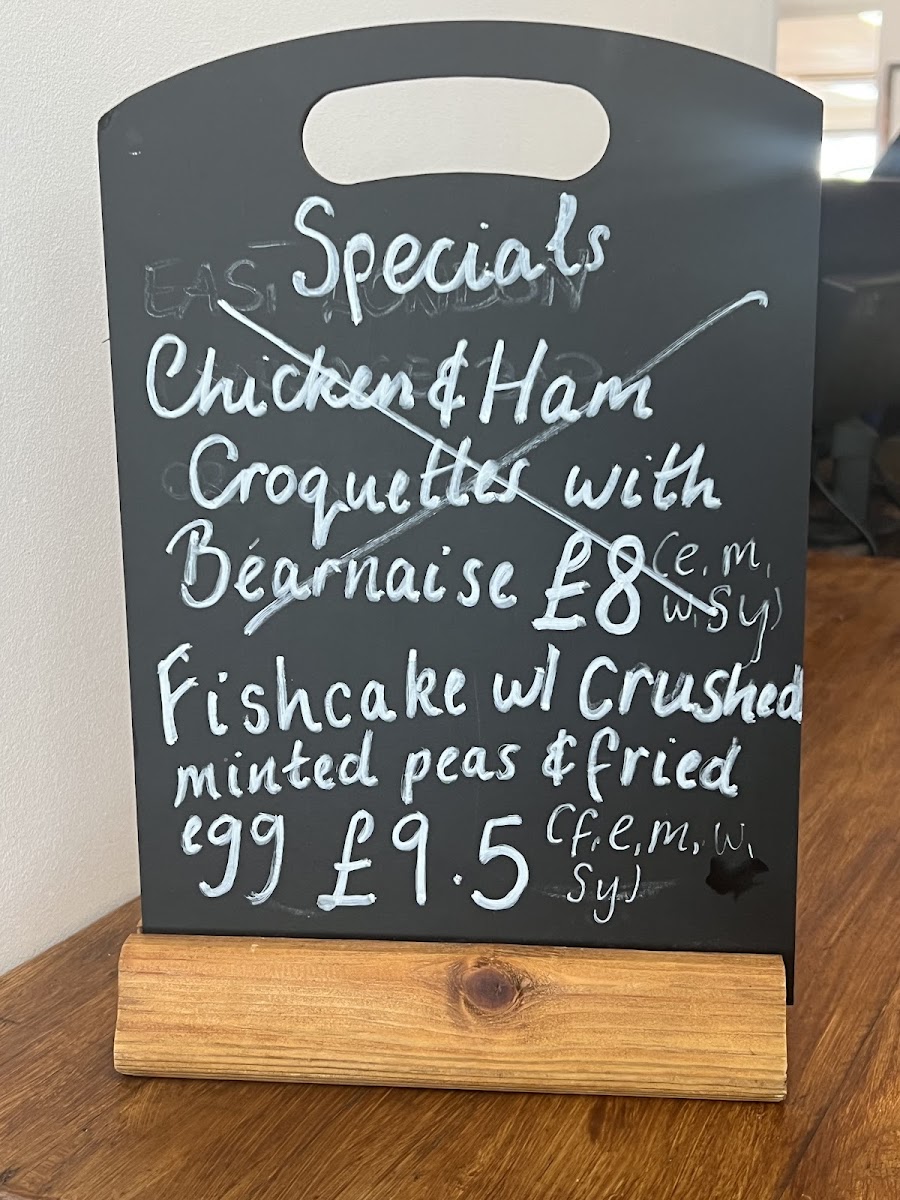 Specials
EAST LONDON
Chicken & Ham
Croquettes with
Béarnaise £8 (e, m,
w, Sy)
Fishcake w/ Crushed
minted peas & fried
egg £9.5 (f, e, m, w,
Sy)